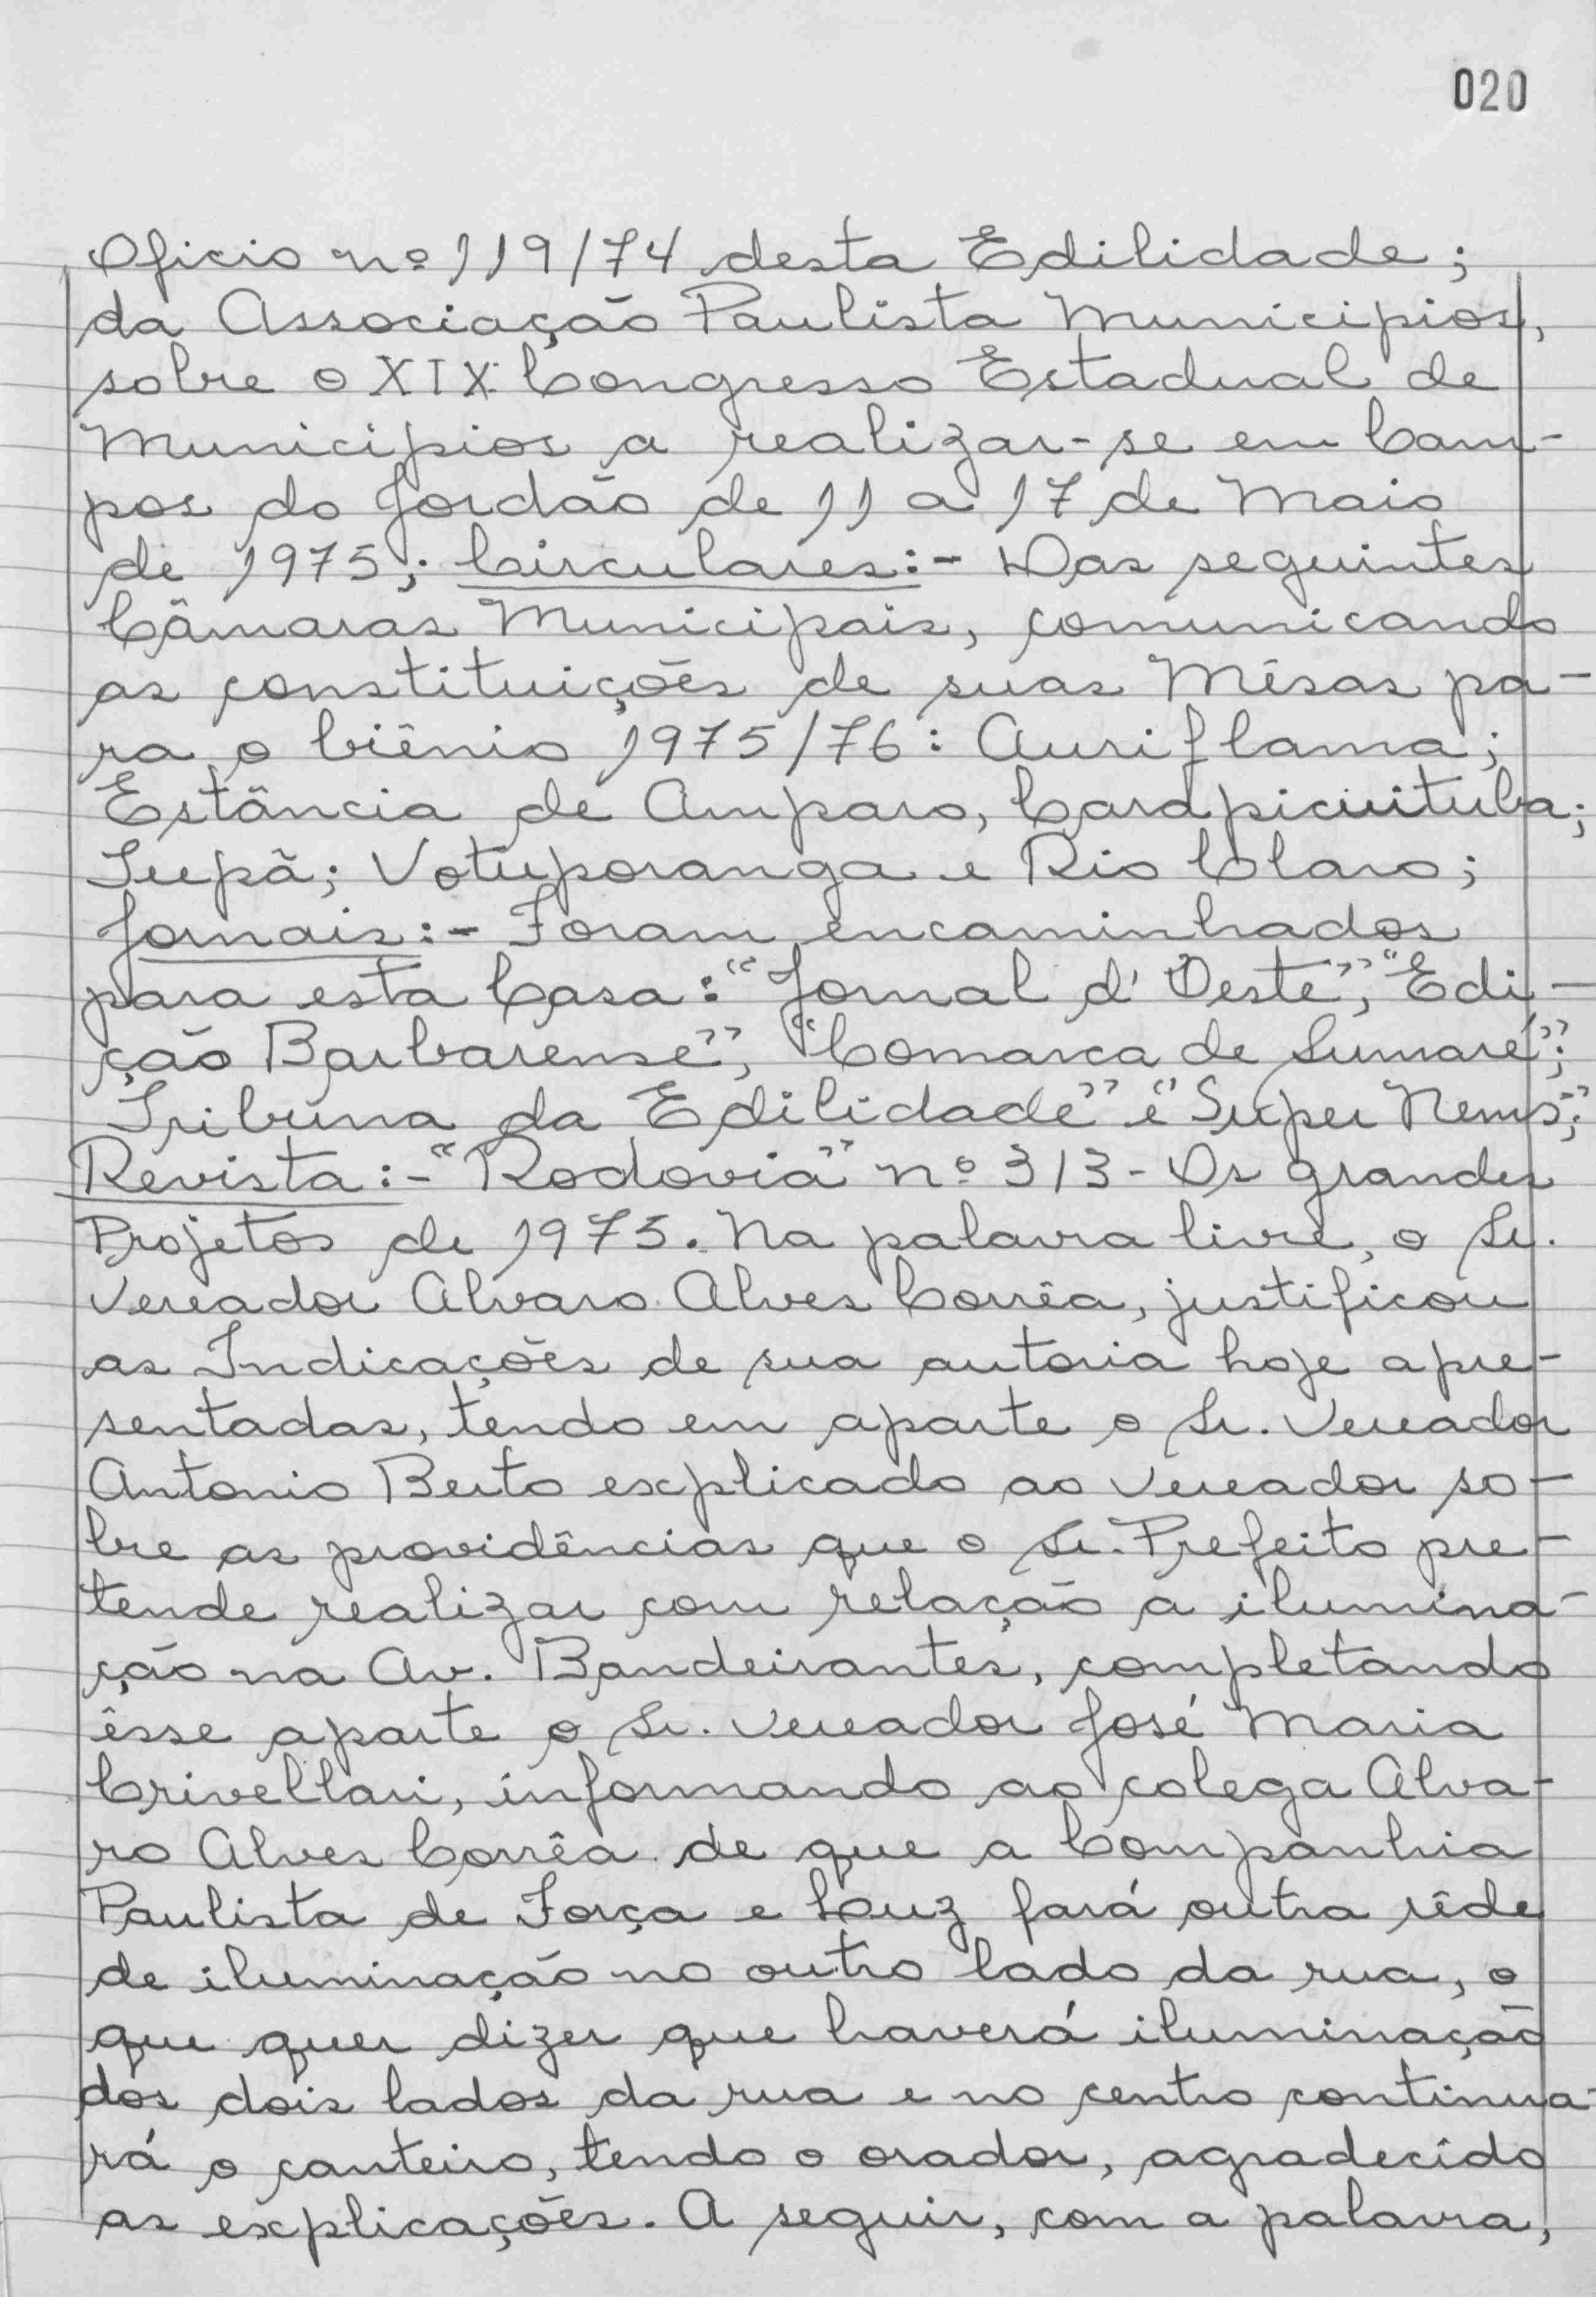 020
Oficio nº 119/74 desta Edilidade;
da Associação Paulista Municipios,
sobre o XIX Congresso Estadual de
Municipios a realizar-se em Cam-
pos do Jordão de 11 a 17 de Maio
de 1975; Circulares:- Das seguintes
Câmaras Municipais, comunicando
as constituições de suas Mêsas pa-
ra o biênio 1975/76: Auriflama;
Estância de Amparo,
Tupã; Votuporanga e Rio Claro;
Jornais:- Foram encaminhados
para esta Casa: "Jornal d'Oeste", "Edi-
ção Barbarense", "Comarca de Sumaré";
Tribuna da Edilidade" e "Super News";
Revista:- "Rodovia" nº 313 - Os grandes
Projetos de 1975. Na palavra livre, o Sr.
Vereador Alvaro Alves Corrêa, justificou
as Indicações de sua autoria hoje apre-
sentadas, tendo em aparte o Sr. Vereador
Antonio Berto explicado ao Vereador so-
bre as providências que o Sr. Prefeito pre-
tende realizar com relação a ilumina-
ção na Av. Bandeirantes, completando
êsse aparte o Sr. Vereador José Maria
Crivellari, informando ao colega Alva-
ro Alves Corrêa de que a Companhia
Paulista de Força e Luz fará outra rêde
de iluminação no outro lado da rua, o
que quer dizer que haverá iluminação
dos dois lados da rua e no centro continua-
rá o canteiro, tendo o orador, agradecido
as explicações. A seguir, com a palavra,